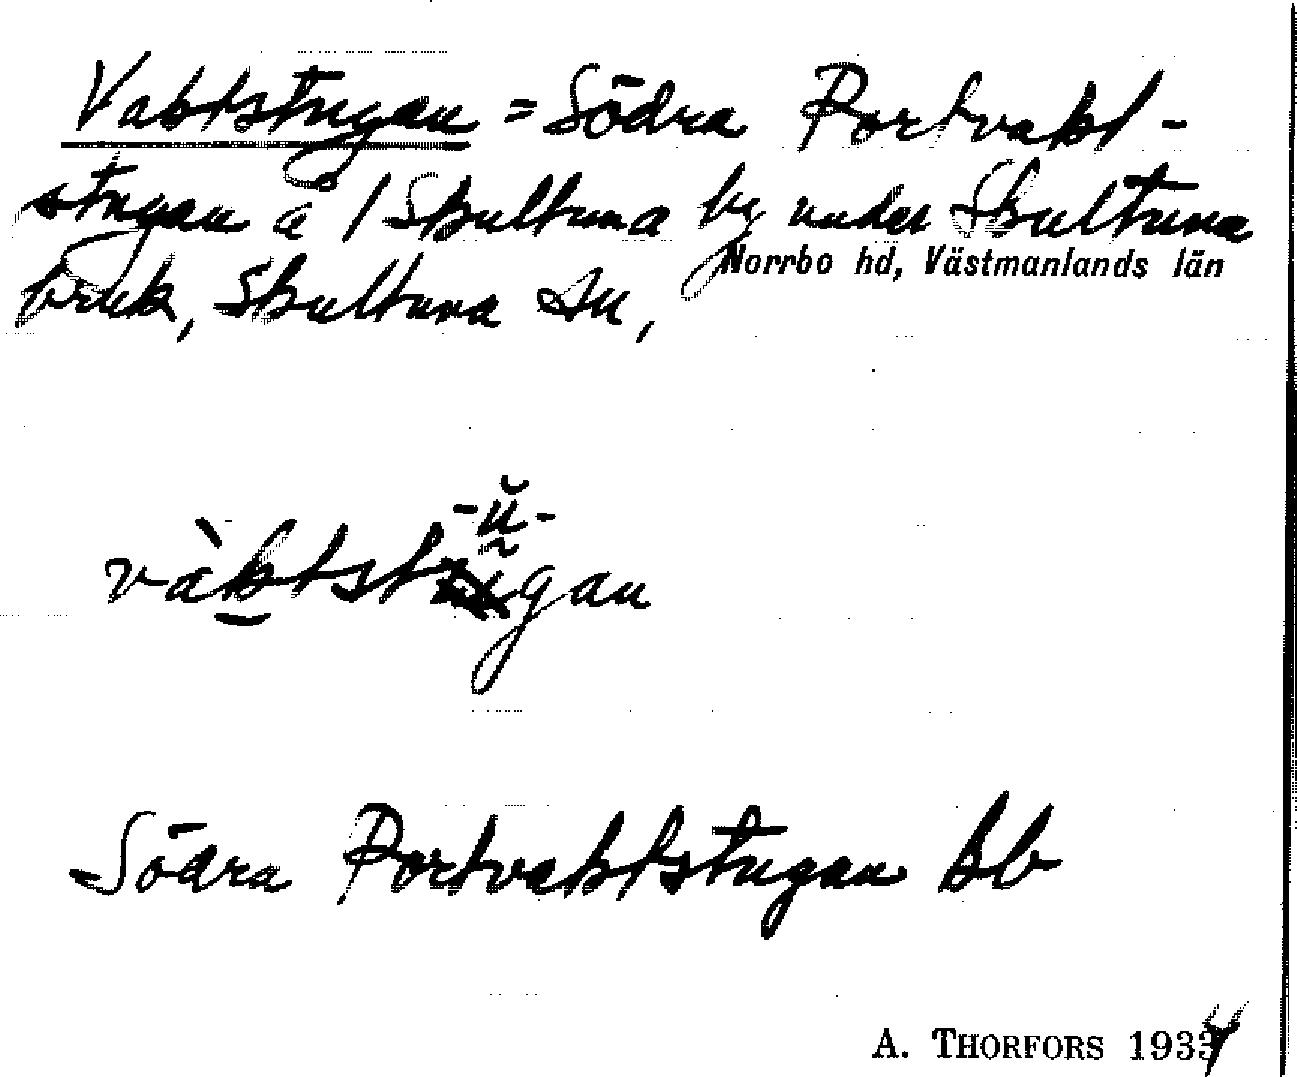 Vaktstugan = Södra Portvakt-
stugan å 1 Skultuna by under Skultuna
bruk, Skultuna sn,
Norrbo hd, Västmanlands län
-ŭ-
vàktstugan
Södra Portvaktstugan Jb
A. THORFORS 1934